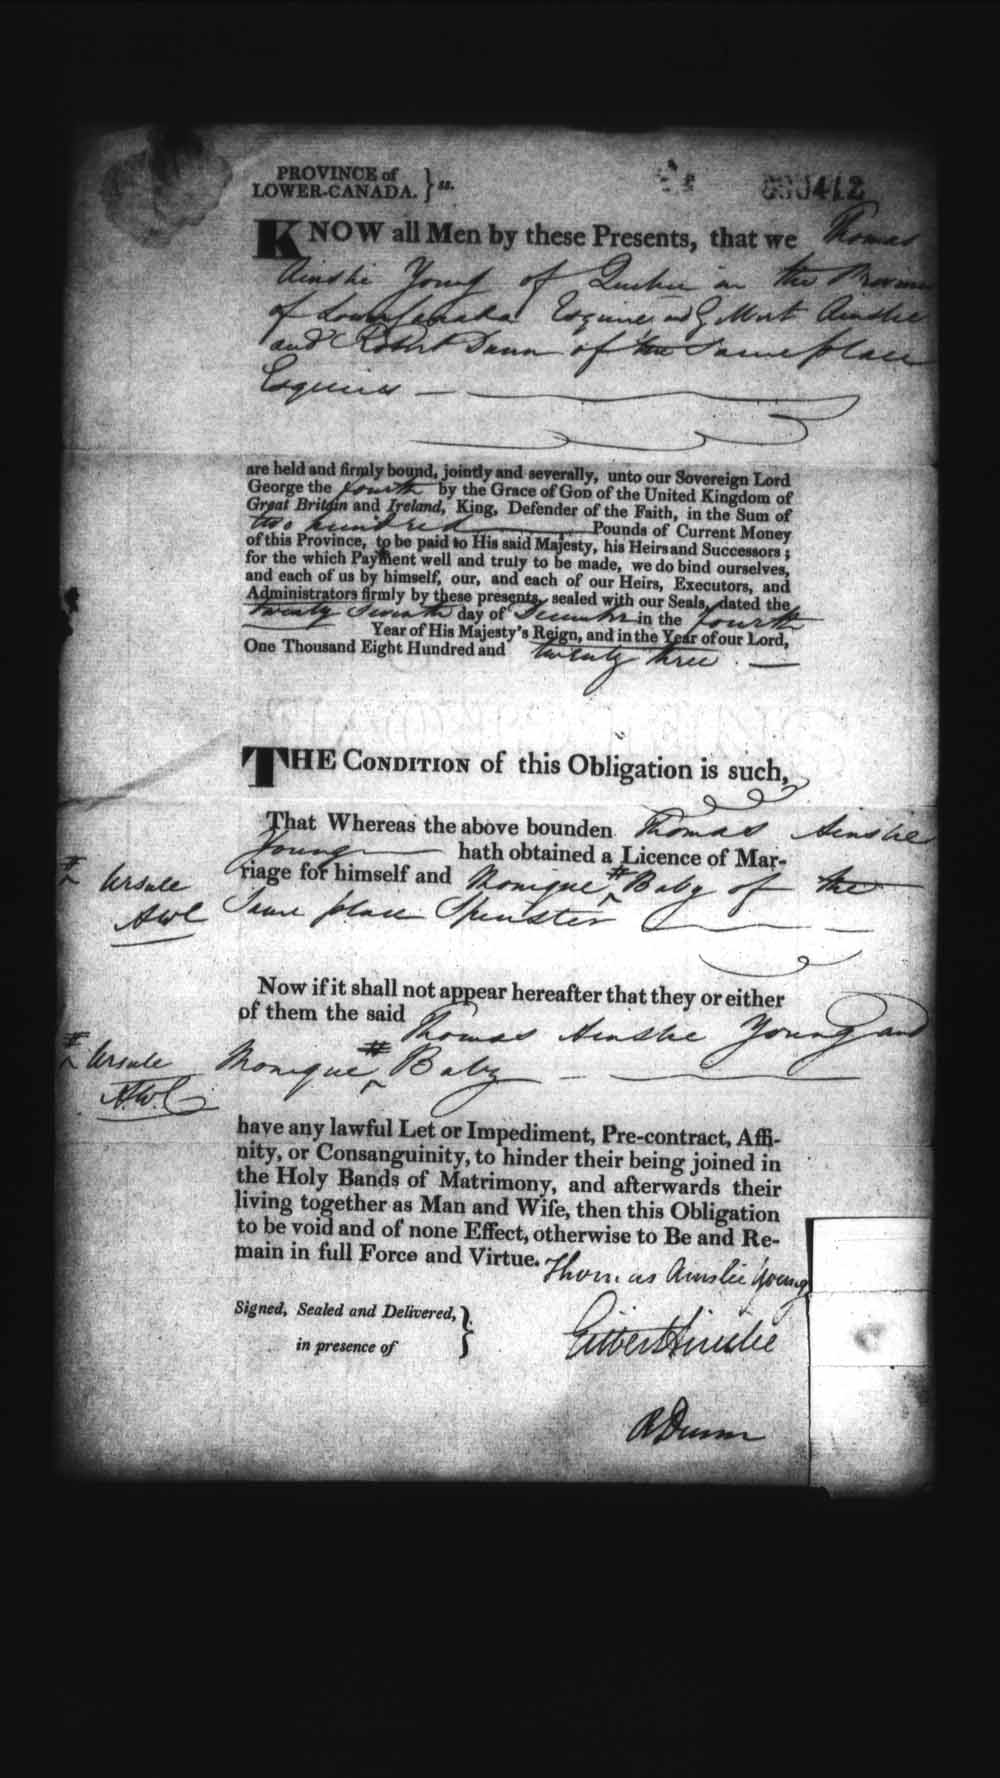 PROVINCE of
LOWER-CANADA. } ss.
412
KNOW all Men by these Presents, that we Thomas
Ainslie Young of Quebec in the Province
of Lower Canada Esquire and Gilbert Ainslie
and Robert Dunn of the same place
Esquires
are held and firmly bound, jointly and severally, unto our Sovereign Lord
George the fourth by the Grace of GOD of the United Kingdom of
Great Britain and Ireland, King, Defender of the Faith, in the Sum of
two hundred Pounds of Current Money
of this Province, to be paid to His said Majesty, his Heirs and Successors;
for the which Payment well and truly to be made, we do bind ourselves,
and each of us by himself, our, and each of our Heirs, Executors, and
Administrators firmly by these presents, sealed with our Seals, dated the
twenty Seventh day of December in the fourth
Year of His Majesty's Reign, and in the Year of our Lord,
One Thousand Eight Hundred and twenty three.
THE CONDITION of this Obligation is such,
That Whereas the above bounden Thomas Ainslie
Young hath obtained a Licence of Mar-
riage for himself and Monique # Baby of the
# Ursule
same place Spinster
AWC
Now if it shall not appear hereafter that they or either
of them the said Thomas Ainslie Young and
# Ursule Monique # Baby
A.W.C
have any lawful Let or Impediment, Pre-contract, Affi-
nity, or Consanguinity, to hinder their being joined in
the Holy Bands of Matrimony, and afterwards their
living together as Man and Wife, then this Obligation
to be void and of none Effect, otherwise to Be and Re-
main in full Force and Virtue.
Thomas Ainslie Young
Signed, Sealed and Delivered, }
in presence of
Gilbert Ainslie
R Dunn